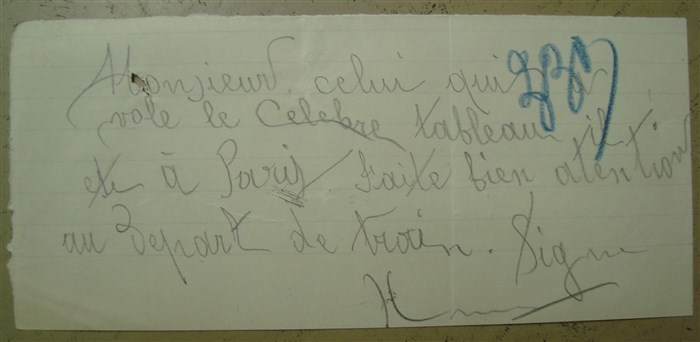 Monsieur celui qui a
vole le Celebre tableau il
et à Paris faite bien atention
au Depart de train. Signe
H